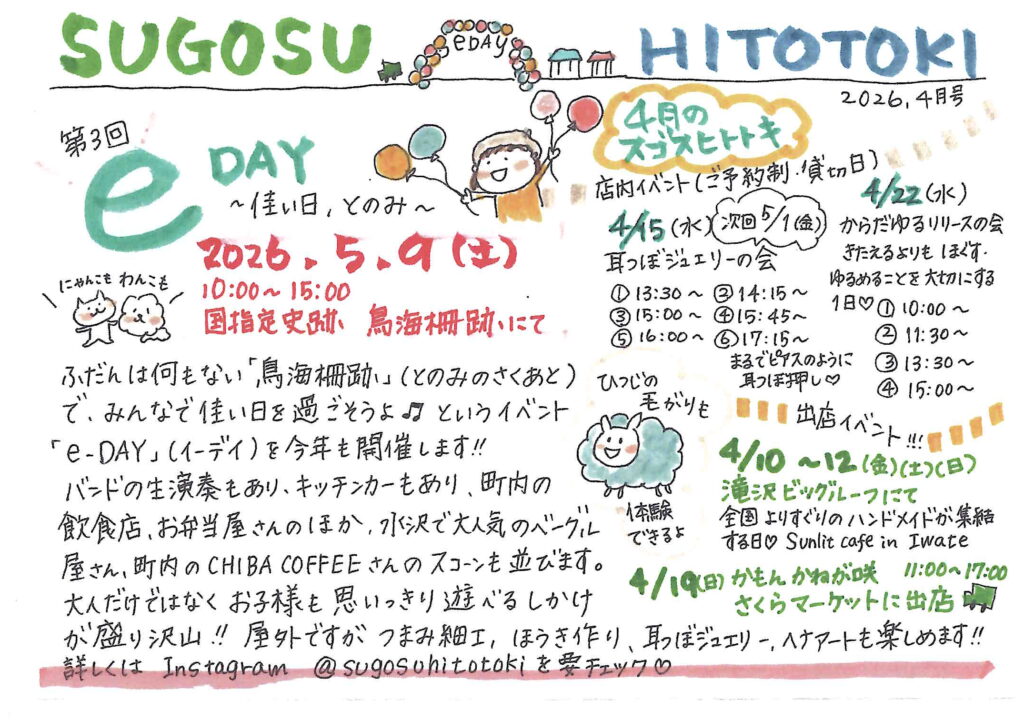 SUGOSU
eDAY
HITOTOKI
2026.4月号
第3回
e DAY
～佳い日、とのみ～
2026.5.9(土)
10:00～15:00
国指定史跡 鳥海柵跡にて
にゃんこも わんこも
ふだんは何もない「鳥海柵跡」(とのみのさくあと)
で、みんなで佳い日を過ごそうよ♫ というイベント
「e-DAY」(イーデイ)を今年も開催します!!
バンドの生演奏もあり、キッチンカーもあり、町内の
飲食店、お弁当屋さんのほか、水沢で大人気のベーグル
屋さん、町内のCHIBA COFFEEさんのスコーンも並びます。
大人だけではなく お子様も 思いっきり 遊べる しかけ
が 盛り沢山!! 屋外ですが つまみ細工, ほうき作り、耳つぼジュエリー, ヘナアートも楽しめます!!
詳しくは Instagram @sugosuhitotoki を要チェック♡
4月の
スゴスヒトトキ
店内イベント(ご予約制・貸切日)
4/15(水)
次回5/1(金)
耳つぼジュエリーの会
①13:30～ ②14:15～
③15:00～ ④15:45～
⑤16:00～ ⑥17:15～
まるでピアスのように
耳つぼ押し♡
4/22(水)
からだゆるリリースの会
きたえるよりも ほぐす・
ゆるめることを大切にする
1日♡ ①10:00～
②11:30～
③13:30～
④15:00～
ひつじの
毛がりも
体験
できるよ
出店イベント!!!
4/10～12(金)(土)(日)
滝沢ビッグルーフにて
全国よりすぐりのハンドメイドが集結
する日♡ Sunlit cafe in Iwate
4/19(日) かもん かねが咲 11:00～17:00
さくらマーケットに出店